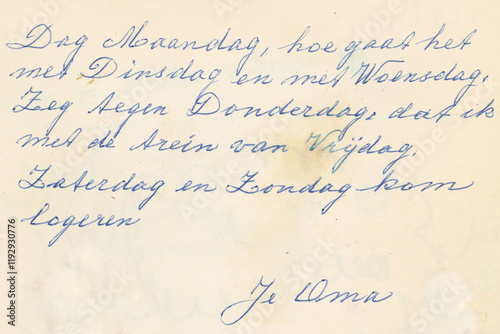 Dag Maandag, hoe gaat het
met Dinsdag en met Woensdag.
Zeg tegen Donderdag, dat ik
met de trein van Vrijdag.
Zaterdag en Zondag kom
logeren
Je Oma
Adobe Stock | #1192930776